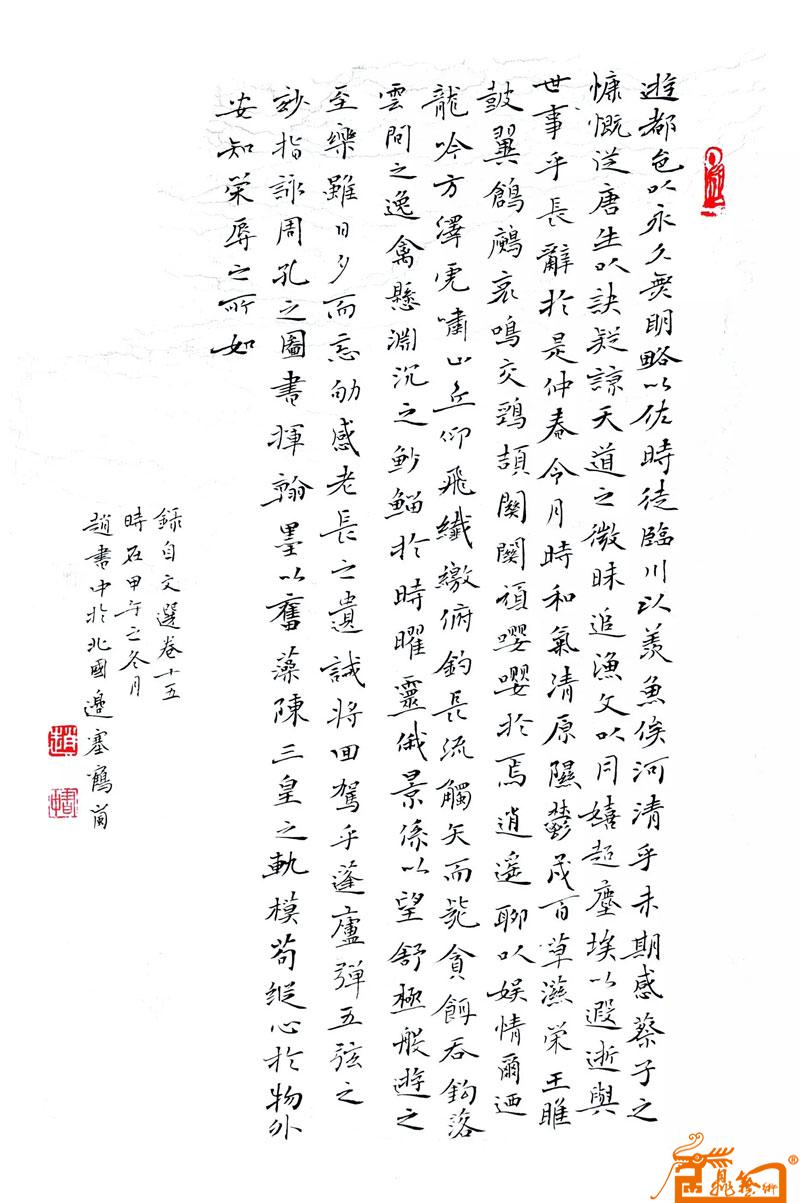 遊都邑以永久無明略以佐時徒臨川以羨魚俟河清乎未期感蔡子之
慷慨從唐生以訣疑諒天道之微昧追漁父以同嬉超塵埃以遐逝與
世事乎長辭於是仲春令月時和氣清原隰鬱茂百草滋榮王雎
鼓翼鶬鶊哀鳴交頸頡頏關關嚶嚶於焉逍遙聊以娛情爾迺
龍吟方澤虎嘯山丘仰飛纖繳俯釣長流觸矢而斃貪餌吞鉤落
雲間之逸禽懸淵沉之魦鰡於時曜靈俄景係以望舒極般遊之
至樂雖日夕而忘劬感老氏之遺誡將回駕乎蓬廬彈五弦之
妙指詠周孔之圖書揮翰墨以奮藻陳三皇之軌模苟縱心於物外
安知榮辱之所如
錄自文選卷十五
時在甲午之冬月
趙書中於北國邊塞鶴崗
趙
書中